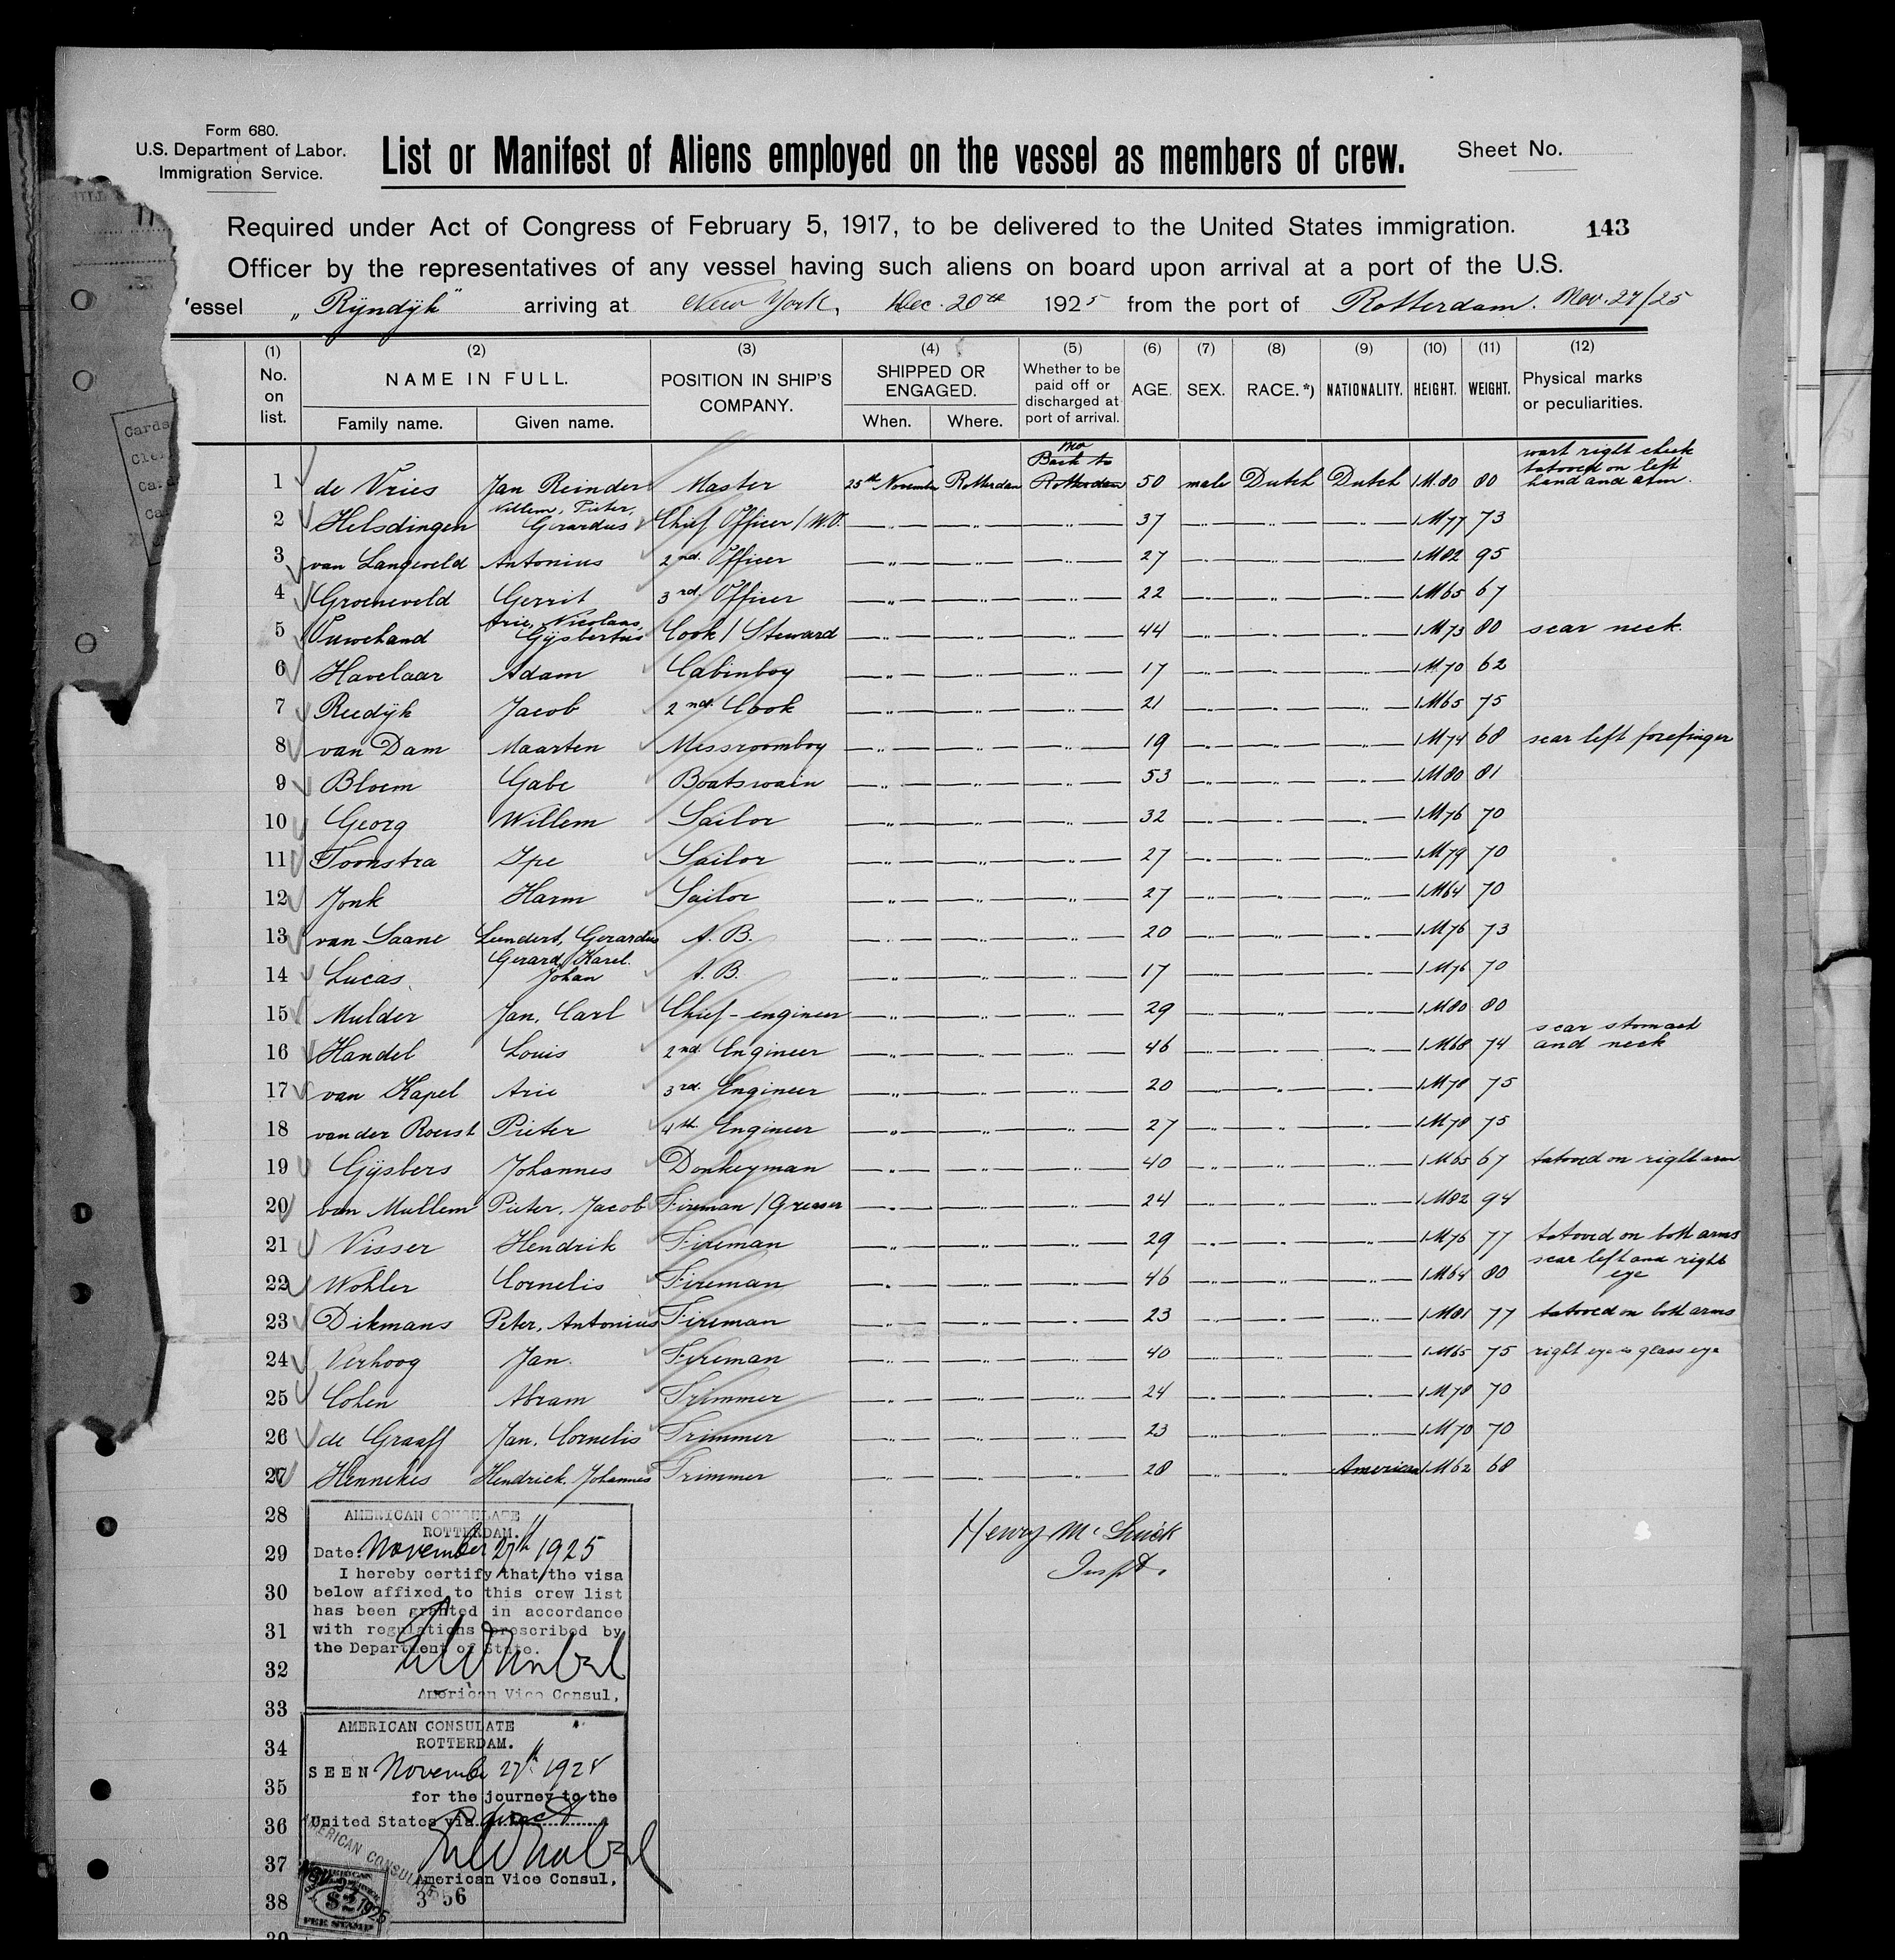 Form 680.
U.S. Department of Labor.
Immigration Service.
List or Manifest of Aliens employed on the vessel as members of crew.
Sheet No.
Required under Act of Congress of February 5, 1917, to be delivered to the United States immigration.
143
Officer by the representatives of any vessel having such aliens on board upon arrival at a port of the U.S.
'essel „Ryndÿk" arriving at New York, Dec. 20th 1925 from the port of Rotterdam. Nov. 27/25
(1) (2) (3) (4) (5) (6) (7) (8) (9) (10) (11) (12)
No. on list. NAME IN FULL. Family name. Given name. POSITION IN SHIP'S COMPANY. SHIPPED OR ENGAGED. When. Where. Whether to be paid off or discharged at port of arrival. AGE. SEX. RACE.*) NATIONALITY. HEIGHT. WEIGHT. Physical marks or peculiarities.
1 de Vries Jan Reinder Master 25th November Rotterdam No Back to Rotterdam 50 male Dutch Dutch 1M80 80 wart right cheek tatooed on left hand and arm.
2 Helsdingen Willem, Pieter, Gerardus Chief Officer / W.O. —„— —„— —„— 37 —„— —„— —„— 1M77 73
3 van Langeveld Antonius 2nd. Officer —„— —„— —„— 27 —„— —„— —„— 1M82 95
4 Groeneveld Gerrit 3rd. Officer —„— —„— —„— 22 —„— —„— —„— 1M65 67
5 Vuurhand Arie, Nicolaas, Gÿsbertus Cook / Steward —„— —„— —„— 44 —„— —„— —„— 1M73 80 scar neck.
6 Havelaar Adam Cabinboy —„— —„— —„— 17 —„— —„— —„— 1M70 62
7 Reedÿk Jacob 2nd. Cook —„— —„— —„— 21 —„— —„— —„— 1M65 75
8 van Dam Maarten Messroomboy —„— —„— —„— 19 —„— —„— —„— 1M74 68 scar left forefinger
9 Bloem Gabe Boatswain —„— —„— —„— 53 —„— —„— —„— 1M80 81
10 Georg Willem Sailor —„— —„— —„— 32 —„— —„— —„— 1M76 70
11 Toonstra Ipe Sailor —„— —„— —„— 27 —„— —„— —„— 1M79 70
12 Jonk Harm Sailor —„— —„— —„— 27 —„— —„— —„— 1M64 70
13 van Saane Leendert, Gerardus A. B. —„— —„— —„— 20 —„— —„— —„— 1M76 73
14 Lucas Gerard, Karel. Johan A. B. —„— —„— —„— 17 —„— —„— —„— 1M76 70
15 Mulder Jan, Carl Chief-engineer —„— —„— —„— 29 —„— —„— —„— 1M80 80
16 Handel Louis 2nd. Engineer —„— —„— —„— 46 —„— —„— —„— 1M68 74 scar stomach and neck
17 van Kapel Arie 3rd. Engineer —„— —„— —„— 20 —„— —„— —„— 1M78 75
18 van der Roest Pieter 4th Engineer —„— —„— —„— 27 —„— —„— —„— 1M78 75
19 Gÿsbers Johannes Donkeyman —„— —„— —„— 40 —„— —„— —„— 1M65 67 tatooed on right arm
20 van Mullem Pieter, Jacob Fireman / Greaser —„— —„— —„— 24 —„— —„— —„— 1M82 94
21 Visser Hendrik Fireman —„— —„— —„— 29 —„— —„— —„— 1M76 77 tatooed on both arms
22 Wohler Cornelis Fireman —„— —„— —„— 46 —„— —„— —„— 1M64 80 scar left and right eye
23 Dikmans Peter, Antonius Fireman —„— —„— —„— 23 —„— —„— —„— 1M81 77 tatooed on both arms
24 Verhoog Jan. Fireman —„— —„— —„— 40 —„— —„— —„— 1M65 75 right eye is glass eye
25 Cohen Abram Trimmer —„— —„— —„— 24 —„— —„— —„— 1M78 70
26 de Graaff Jan, Cornelis Trimmer —„— —„— —„— 23 —„— —„— —„— 1M70 70
27 Hennekes Hendrick, Johannes Trimmer —„— —„— —„— 28 —„— —„— American 1M62 68
28
29
30
31
32
33
34
35
36
37
38
39
Henry Mc
Inspt.
AMERICAN CONSULATE
ROTTERDAM.
Date: November 27th 1925
I hereby certify that the visa
below affixed to this crew list
has been granted in accordance
with regulations prescribed by
the Department of State.
American Vice Consul,
AMERICAN CONSULATE
ROTTERDAM.
SEEN November 27th 1925
for the journey to the
United States via direct
American Vice Consul,
3356
AMERICAN CONSULATE
NOV 27 1925
$2
FEE STAMP
Cards
Cler
Card
Ca